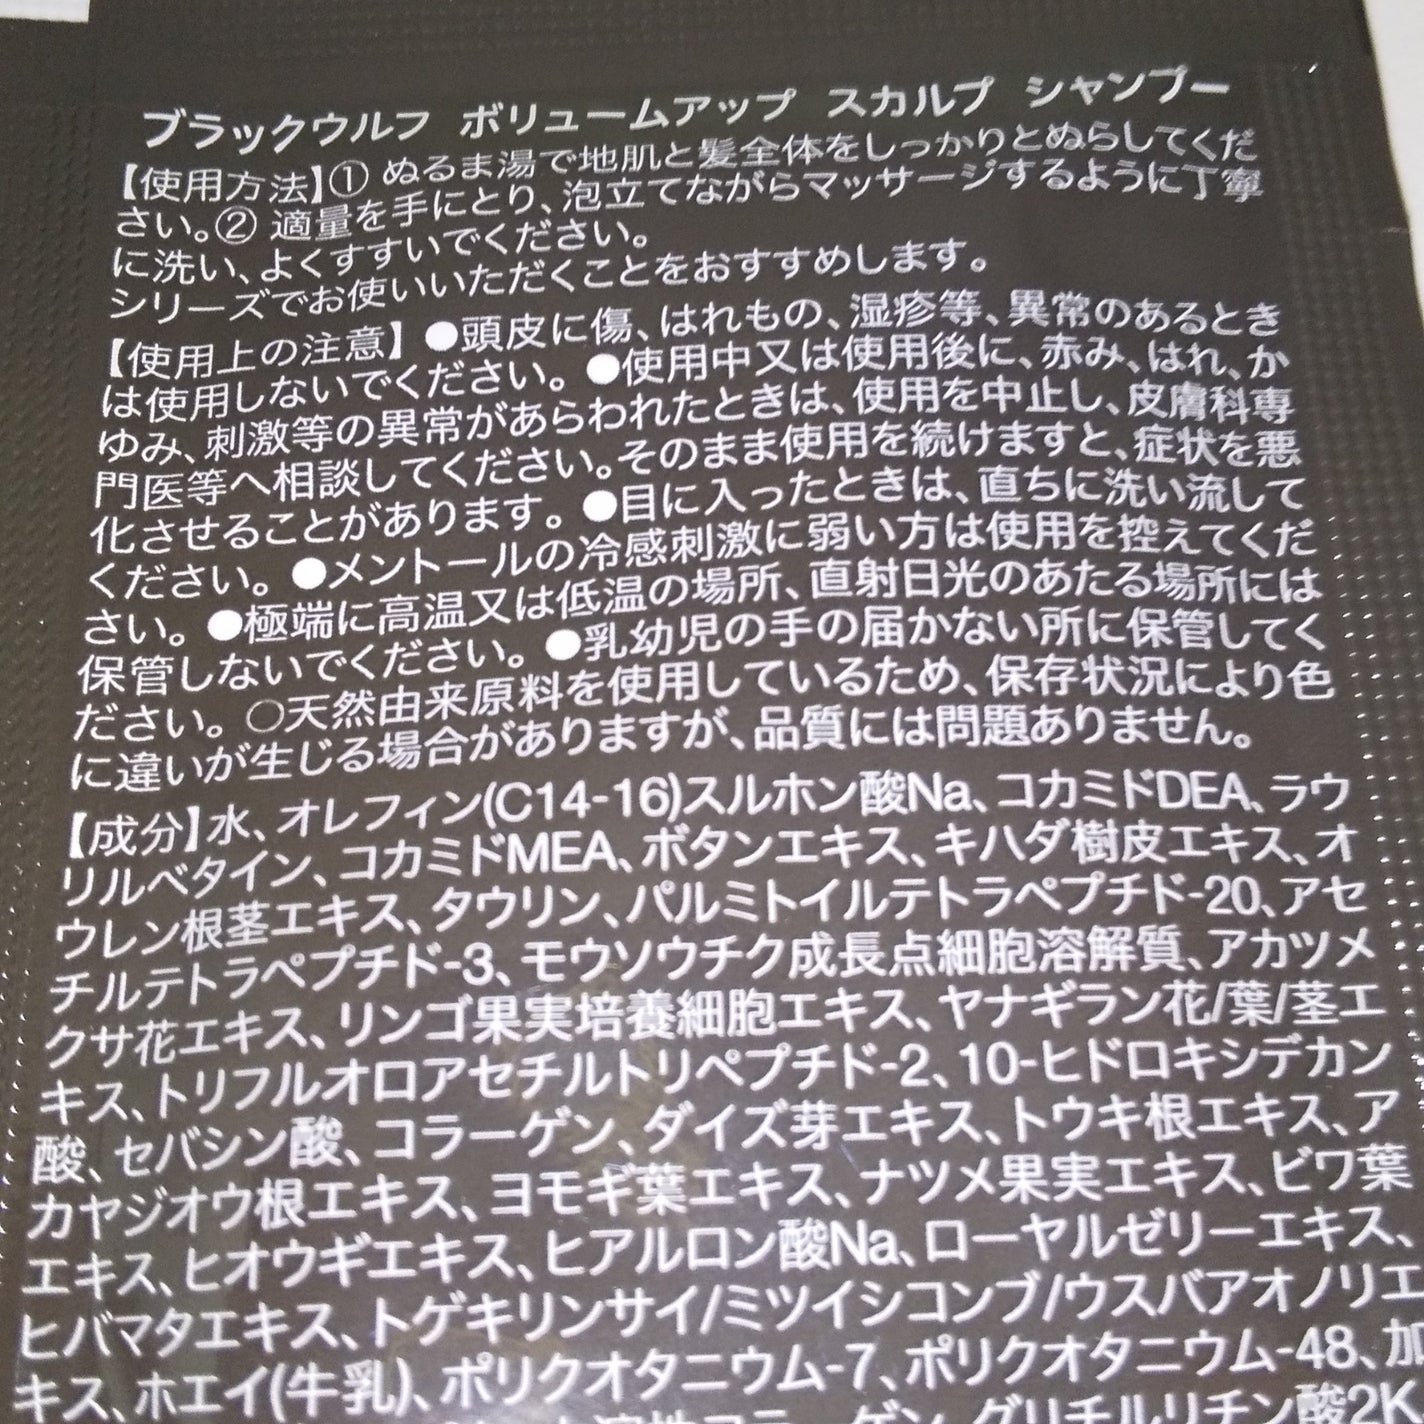 ブラックウルフ ボリュームアップ スカルプ シャンプー
【使用方法】① ぬるま湯で地肌と髪全体をしっかりとぬらしてくだ
さい。② 適量を手にとり、泡立てながらマッサージするように丁寧
に洗い、よくすすいでください。
シリーズでお使いいただくことをおすすめします。
【使用上の注意】 ●頭皮に傷、はれもの、湿疹等、異常のあるとき
は使用しないでください。 ●使用中又は使用後に、赤み、はれ、か
ゆみ、刺激等の異常があらわれたときは、使用を中止し、皮膚科専
門医等へ相談してください。そのまま使用を続けますと、症状を悪
化させることがあります。 ●目に入ったときは、直ちに洗い流して
ください。 ●メントールの冷感刺激に弱い方は使用を控えてくだ
さい。 ●極端に高温又は低温の場所、直射日光のあたる場所には
保管しないでください。 ●乳幼児の手の届かない所に保管してく
ださい。 ○天然由来原料を使用しているため、保存状況により色
に違いが生じる場合がありますが、品質には問題ありません。
【成分】水、オレフィン(C14-16)スルホン酸Na、コカミドDEA、ラウ
リルベタイン、コカミドMEA、ボタンエキス、キハダ樹皮エキス、オ
ウレン根茎エキス、タウリン、パルミトイルテトラペプチド-20、アセ
チルテトラペプチド-3、モウソウチク成長点細胞溶解質、アカツメ
クサ花エキス、リンゴ果実培養細胞エキス、ヤナギラン花/葉/茎エ
キス、トリフルオロアセチルトリペプチド-2、10-ヒドロキシデカン
酸、セバシン酸、コラーゲン、ダイズ芽エキス、トウキ根エキス、ア
カヤジオウ根エキス、ヨモギ葉エキス、ナツメ果実エキス、ビワ葉
エキス、ヒオウギエキス、ヒアルロン酸Na、ローヤルゼリーエキス、
ヒバマタエキス、トゲキリンサイ/ミツイシコンブ/ウスバアオノリエ
キス、ホエイ(牛乳)、ポリクオタニウム-7、ポリクオタニウム-48、加
コラーゲン、グリチルリチン酸2K